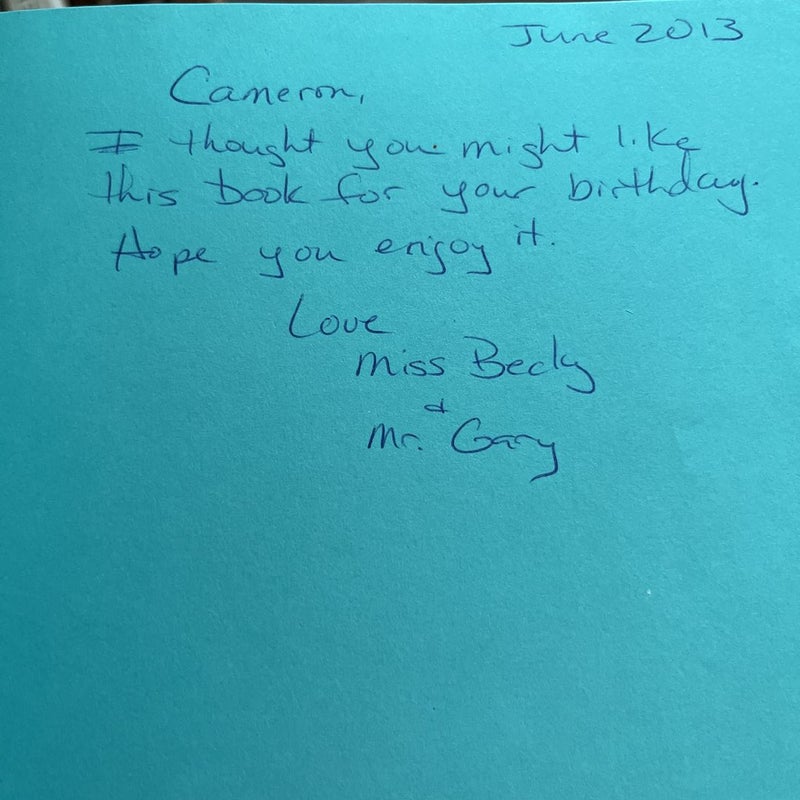 June 2013
Cameron,
I thought you might like
this book for your birthday.
Hope you enjoy it.
Love
Miss Becky
&
Mr. Gary